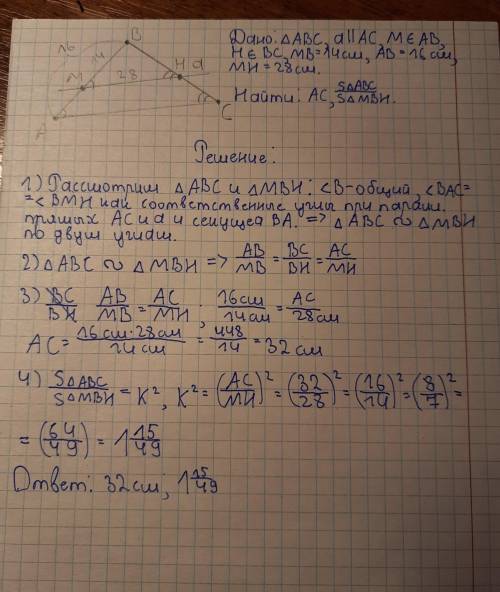 B
16
14
H a
M
28
A
C
Дано: △ABC, a∥AC, M∈AB,
H∈BC, MB=14см, AB=16см,
MH=28см.
Найти: AC, S△ABC/S△MBH.
Решение:
1) Рассмотрим △ABC и △MBH: <B-общий, <BAC=
=<BMH как соответственные углы при парал.
прямых AC и a и секущей BA. => △ABC ∽ △MBH
по двум углам.
2) △ABC ∽ △MBH => AB/MB = BC/BH = AC/MH
3) BC/BH AB/MB = AC/MH ; 16см/14см = AC/28см
AC = 16см·28см/14см = 448/14 = 32см
4) S△ABC/S△MBH = K², K² = (AC/MH)² = (32/28)² = (16/14)² = (8/7)² =
= (64/49) = 1 15/49
Ответ: 32см; 1 15/49